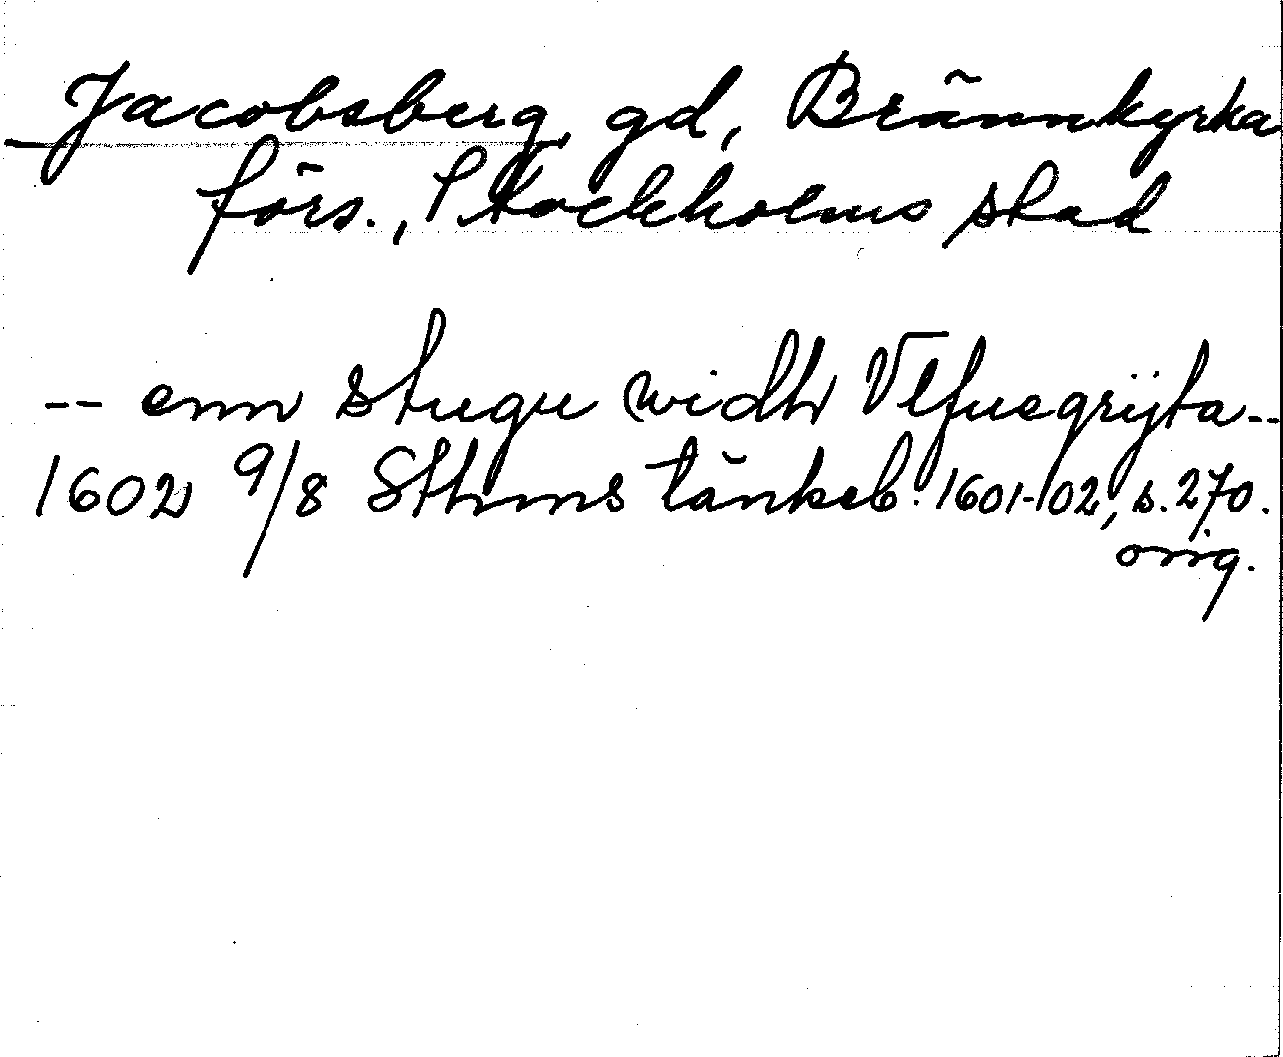 Jacobsberg, gd, Brännkyrka
förs., Stockholms stad
-- enn stugu widh Vlfuegrÿta--
1602 9/8 Sthms tänkeb. 1601-102, s. 270.
orig.